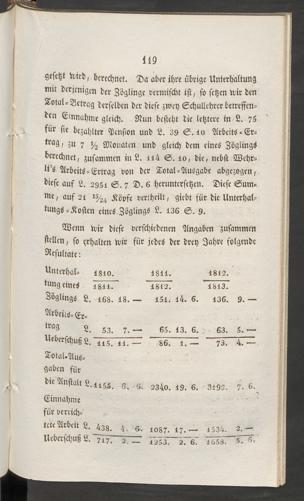 119
gesetzt wird, berechnet. Da aber ihre übrige Unterhaltung
mit derjenigen der Zöglinge vermischt ist, so setzen wir den
Total-Betrag derselben der diese zwey Schullehrer betreffen-
den Einnahme gleich. Nun besteht die letztere in L. 75
für sie bezahlter Pension und L. 39 S. 10 Arbeits-Er-
trag, zu 7 ½ Monaten und gleich dem eines Zöglings
berechnet, zusammen in L. 114 S. 10, die, nebst Wehr-
li's Arbeits-Ertrag von der Total-Ausgabe abgezogen,
diese auf L. 2951 S. 7 D. 6 heruntersetzen. Diese Sum-
me, auf 21 15/24 Köpfe vertheilt, giebt für die Unterhal-
tungs-Kosten eines Zöglings L. 136 S. 9.
Wenn wir diese verschiedenen Angaben zusammen
stellen, so erhalten wir für jedes der drey Jahre folgende
Resultate:
Unterhal- 1810. 1811. 1812.
tung eines 1811. 1812. 1813.
Zöglings L. 168. 18. — 151. 14. 6. 136. 9. —
Arbeits-Er-
trag L. 53. 7. — 65. 13. 6. 63. 5. —
Ueberschuß L. 115. 11. — 86. 1. — 73. 4. —
Total-Aus-
gaben für
die Anstalt L. 1155. 6. 6. 2340. 19. 6. 3192. 7. 6.
Einnahme
für verrich-
tete Arbeit L. 438. 4. 6. 1087. 17. — 1534. 2. —
Ueberschuß L. 717. 2. — 1253. 2. 6. 1658. 5. 6.